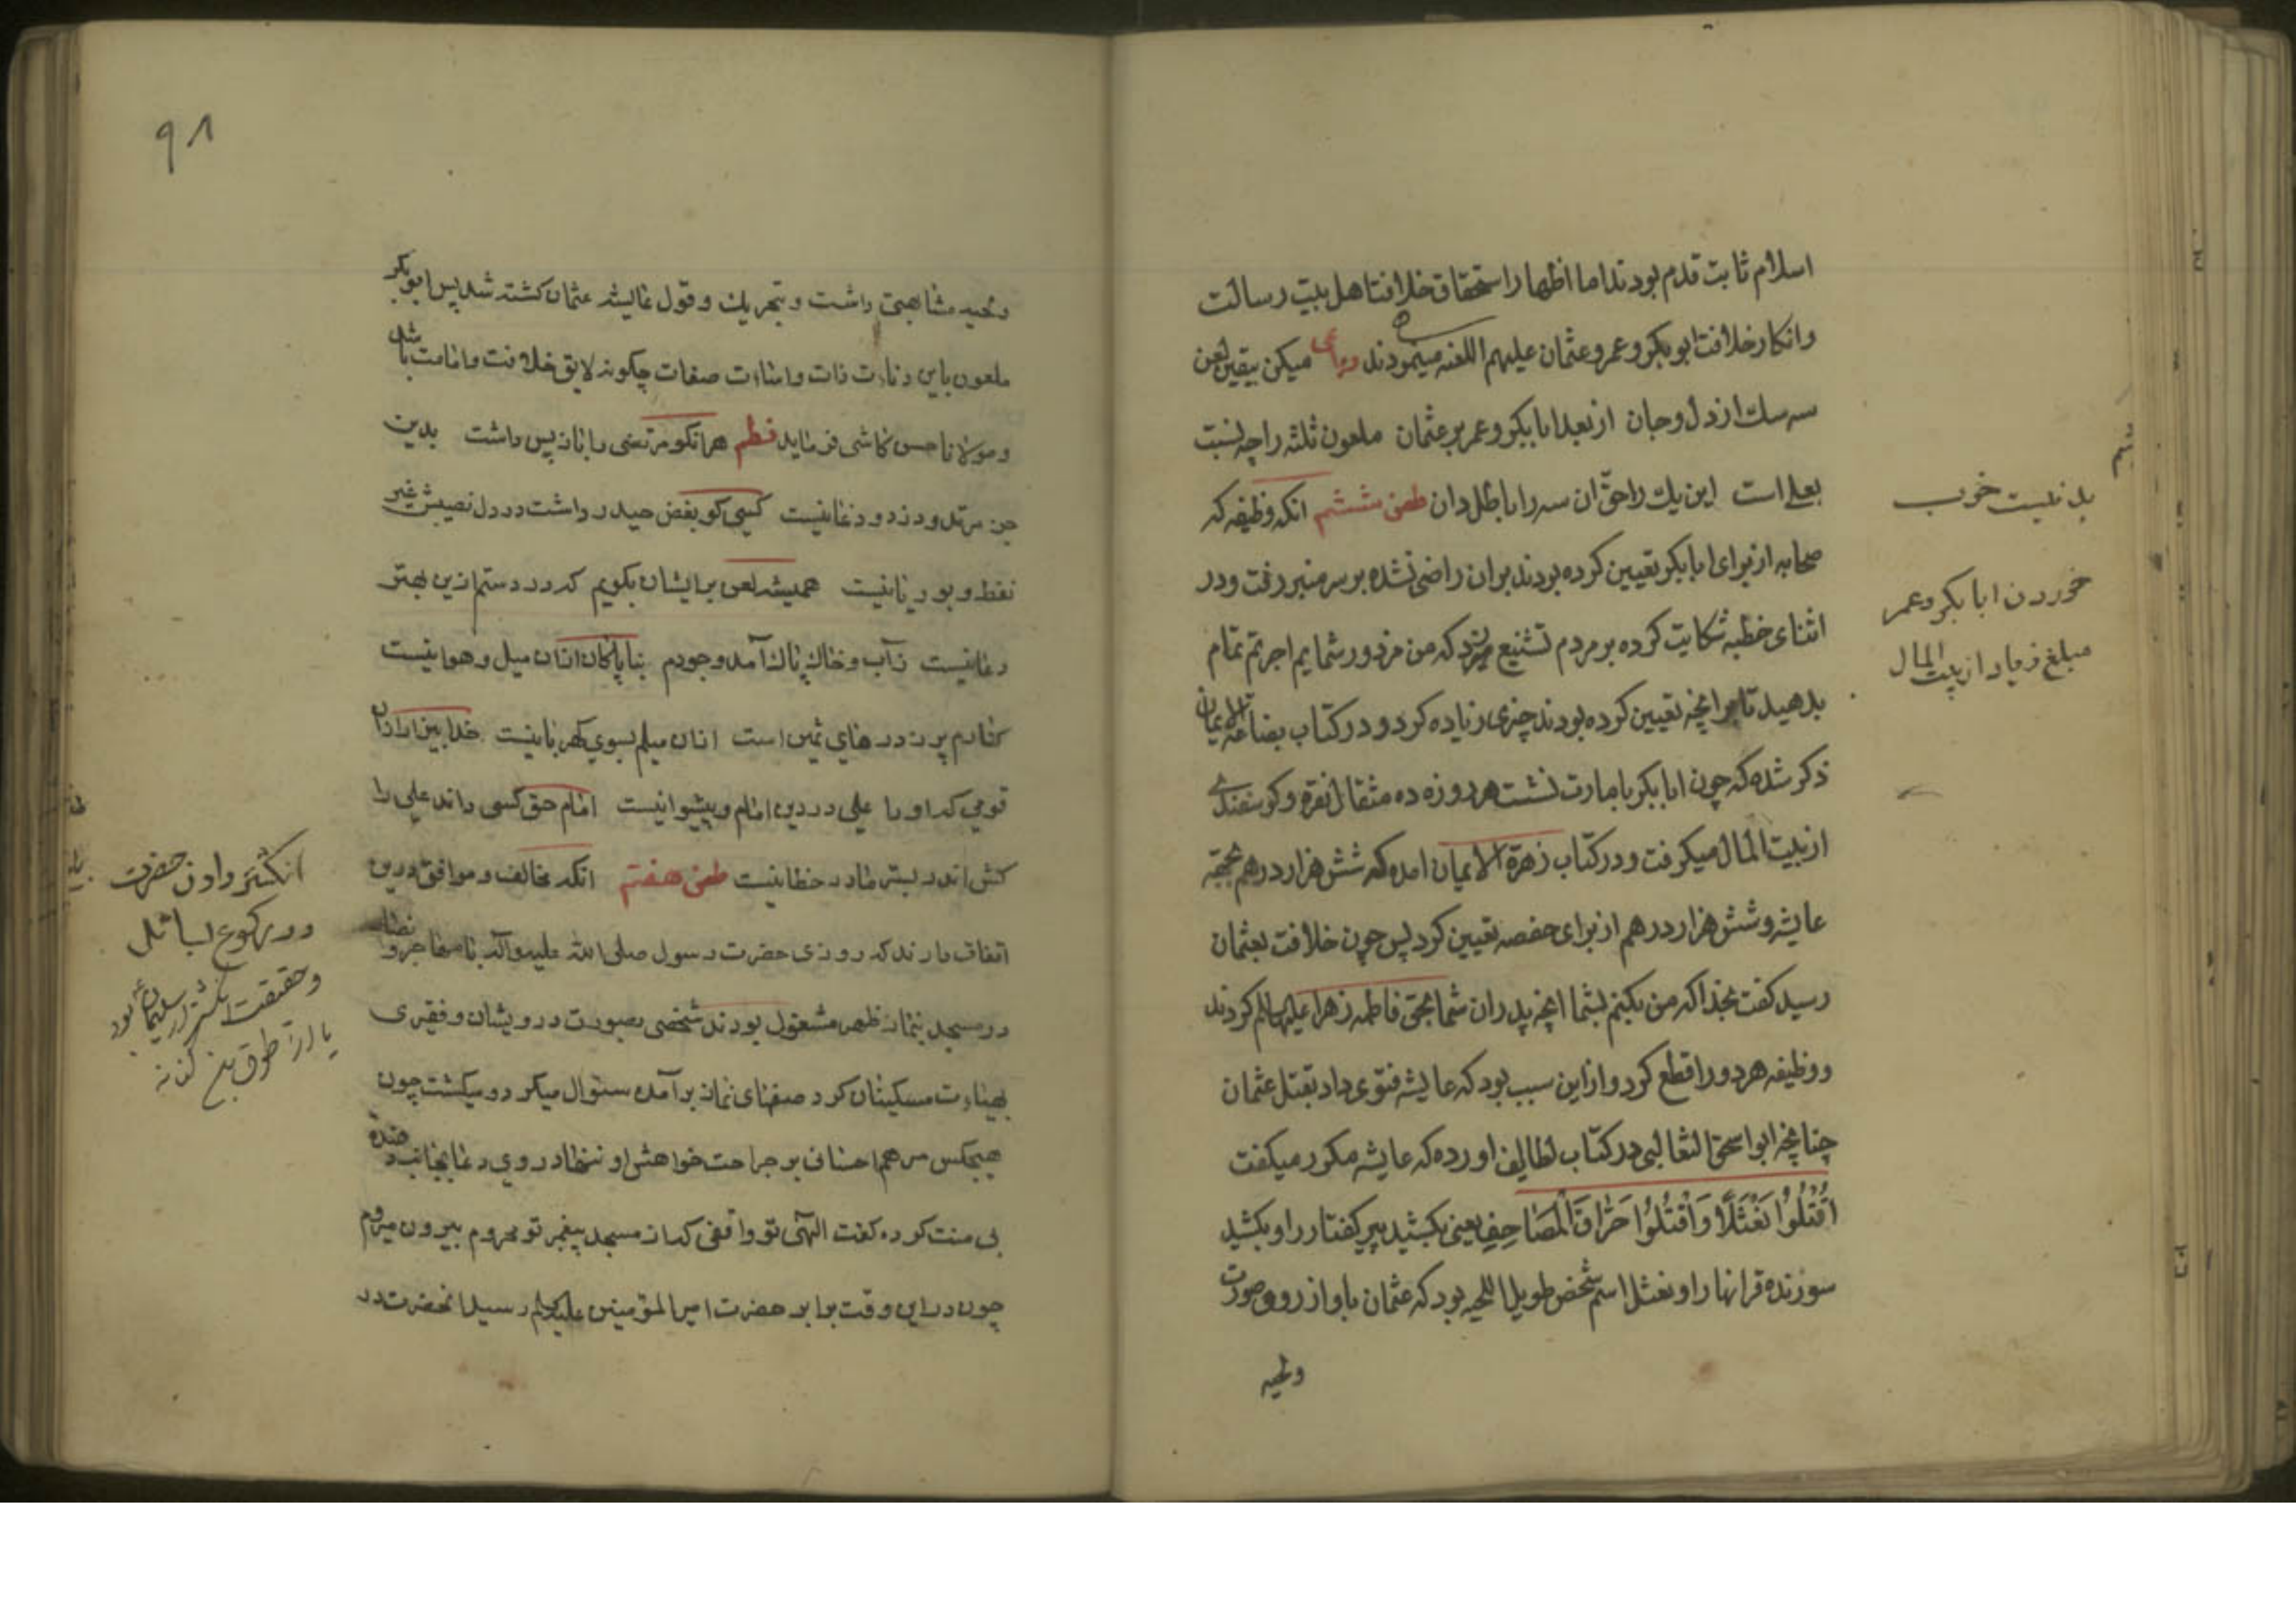 اسلام ثابت قدم بودند اما اظهار استحقاق خلافت اهل بیت رسالت
وانکار خلافت ابوبکر و عمر و عثمان علیهم اللعنه مینمودند میکن بیقین لعن
سه سك از دل و جان از بعد ابابکر و عمر بر عثمان ملعون ثلثه را چه نسبت
بعلی است این یك را حق ان سه را باطل دان طعن ششم انکه وظیفه که
صحابه از برای ابابکر تعیین کرده بودند بران راضی نشده بر سر منبر رفت ودر
اثنای خطبه شکایت کرده بر مردم تشنیع که من مزدور شمایم اجرتم تمام
بدهید تا برانچه تعیین کرده بودند چیزی زیاده کرد و در کتاب بضاعة الایمان
ذکر شده که چون ابابکر بامارت نشست هر روزه ده مثقال نقره و کوسفندی
از بیت المال میکرفت و در کتاب زهرة الایمان امده که شش هزار درهم بجهة
عایشه و شش هزار درهم از برای حفصه تعیین کرد پس چون خلافت بعثمان
رسید کفت بخدا که من نکنم بشما انچه پدران شما بحق فاطمه زهرا علیها کردند
ووظیفه هر دو را قطع کرد و ازاین سبب بود که عایشه فتوی داد بقتل عثمان
چنانچه ابواسحق الثعالبی در کتاب لطایف اورده که عایشه مکرر میکفت
اُقْتُلُوُا نَعْثَلًا وَاُقْتُلُوُا حَرّاقَ الْمَصَاحِفِ یعنی بکشید پیر کفتار را و بکشید
سوزنده قرانها را و نعثل اسم شخص طویل اللحیه بود که عثمان باو از رو وصورت
ولحیه
بد نیست خوب
خوردن ابابکر و عمر
مبلغ زیاد از بیت المال
۹۸
ولحیه مشابهتی داشت و بتحریك و قول عایشه عثمان کشته شد پس ابوبکر
ملعون باین دنائت ذات و صفات چکونه لایق خلافت و امامت باشد
ومولانا حسن کاشی فرماید نظم هر انکو مرتضی را باز پس داشت بدین
جز مرتد و دزد و دغا نیست کسی کو بغض حیدر داشت در دل نصیبش غیر
نفط و بوریا نیست همیشه لعن برایشان بکویم که در دستم ازین بهتر
دعا نیست زآب و خاك پاك آمد وجودم بناپاکان ازان میل و هوا نیست
کنارم پر ز در های ثمین است ازان میلم بسوی کهربا نیست خدا بیزار ازان
قومی که او را علی در دین امام و پیشوا نیست امام حق کسی داند علی را
کش اندر بستر مادر خطا نیست طعن هفتم انکه مخالف و موافق درین
اتفاق دارند که روزی حضرت رسول صلی الله علیه وآله با مهاجر و انصار
در مسجد بنماز ظهر مشغول بودند شخصی بصورت درویشان و فقیری
بهیئات مسکینان کرد صفهای نماز بر آمده سئوال میکرد و میکشت چون
هیچکس مرهم احسان بر جراحت خواهش او ننهاد روی دعا
بی منت کرده کفت الهی تو واقفی که از مسجد پیغمبر تو محروم بیرون میروم
چون دراین وقت برابر حضرت امیر المؤمنین علیه السلام رسید انحضرت در
انکشتر دادن حضرت
در رکوع بسائل
وحقیقت انکشتر